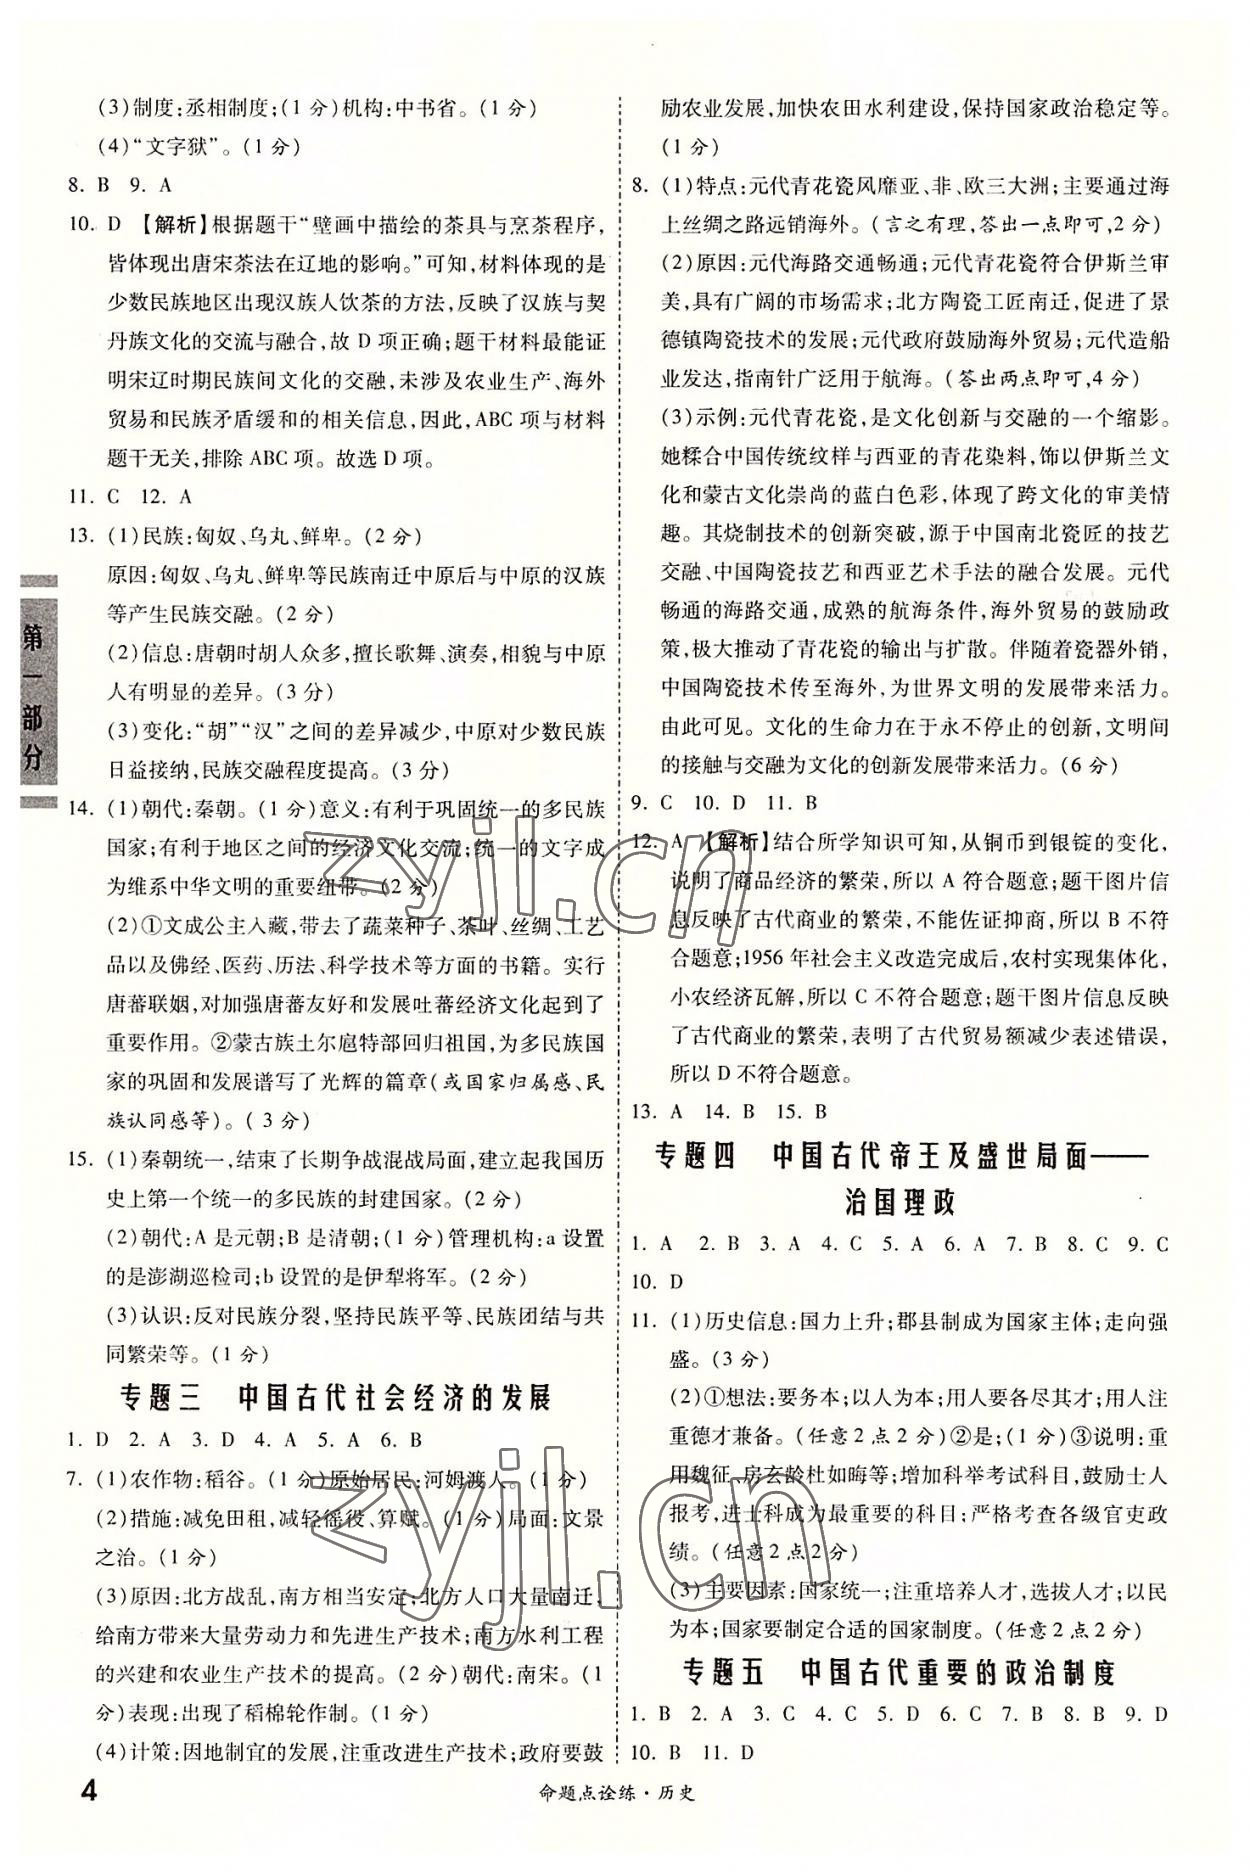 (3)制度:丞相制度;(1分)机构:中书省。(1分)
(4)“文字狱”。(1分)
8. B 9. A
10. D 【解析】根据题干“壁画中描绘的茶具与烹茶程序,
皆体现出唐宋茶法在辽地的影响。”可知,材料体现的是
少数民族地区出现汉族人饮茶的方法,反映了汉族与契
丹族文化的交流与融合,故 D 项正确;题干材料最能证
明宋辽时期民族间文化的交融,未涉及农业生产、海外
贸易和民族矛盾缓和的相关信息,因此,ABC 项与材料
题干无关,排除 ABC 项。故选 D 项。
11. C 12. A
13. (1)民族:匈奴、乌丸、鲜卑。(2分)
原因:匈奴、乌丸、鲜卑等民族南迁中原后与中原的汉族
等产生民族交融。(2分)
(2)信息:唐朝时胡人众多,擅长歌舞、演奏,相貌与中原
人有明显的差异。(3分)
(3)变化:“胡”“汉”之间的差异减少,中原对少数民族
日益接纳,民族交融程度提高。(3分)
14. (1)朝代:秦朝。(1分)意义:有利于巩固统一的多民族
国家;有利于地区之间的经济文化交流;统一的文字成
为维系中华文明的重要纽带。(2分)
(2)①文成公主入藏,带去了蔬菜种子、茶叶、丝绸、工艺
品以及佛经、医药、历法、科学技术等方面的书籍。实行
唐蕃联姻,对加强唐蕃友好和发展吐蕃经济文化起到了
重要作用。②蒙古族土尔扈特部回归祖国,为多民族国
家的巩固和发展谱写了光辉的篇章(或国家归属感、民
族认同感等)。(3分)
15. (1)秦朝统一,结束了长期争战混战局面,建立起我国历
史上第一个统一的多民族的封建国家。(2分)
(2)朝代:A 是元朝;B 是清朝;(1分)管理机构:a 设置
的是澎湖巡检司;b 设置的是伊犁将军。(2分)
(3)认识:反对民族分裂,坚持民族平等、民族团结与共
同繁荣等。(1分)
专题三 中国古代社会经济的发展
1. D 2. A 3. D 4. A 5. A 6. B
7. (1)农作物:稻谷。(1分)原始居民:河姆渡人。(1分)
(2)措施:减免田租,减轻徭役、算赋。(1分)局面:文景
之治。(1分)
(3)原因:北方战乱,南方相当安定;北方人口大量南迁,
给南方带来大量劳动力和先进生产技术;南方水利工程
的兴建和农业生产技术的提高。(2分)朝代:南宋。(1
分)表现:出现了稻棉轮作制。(1分)
(4)计策:因地制宜的发展,注重改进生产技术;政府要鼓
励农业发展,加快农田水利建设,保持国家政治稳定等。
(1分)
8. (1)特点:元代青花瓷风靡亚、非、欧三大洲;主要通过海
上丝绸之路远销海外。(言之有理,答出一点即可,2分)
(2)原因:元代海路交通畅通;元代青花瓷符合伊斯兰审
美,具有广阔的市场需求;北方陶瓷工匠南迁,促进了景
德镇陶瓷技术的发展;元代政府鼓励海外贸易;元代造船
业发达,指南针广泛用于航海。(答出两点即可,4分)
(3)示例:元代青花瓷,是文化创新与交融的一个缩影。
她糅合中国传统纹样与西亚的青花染料,饰以伊斯兰文
化和蒙古文化崇尚的蓝白色彩,体现了跨文化的审美情
趣。其烧制技术的创新突破,源于中国南北瓷匠的技艺
交融、中国陶瓷技艺和西亚艺术手法的融合发展。元代
畅通的海路交通,成熟的航海条件,海外贸易的鼓励政
策,极大推动了青花瓷的输出与扩散。伴随着瓷器外销,
中国陶瓷技术传至海外,为世界文明的发展带来活力。
由此可见。文化的生命力在于永不停止的创新,文明间
的接触与交融为文化的创新发展带来活力。(6分)
9. C 10. D 11. B
12. A 【解析】结合所学知识可知,从铜币到银锭的变化,
说明了商品经济的繁荣,所以 A 符合题意;题干图片信
息反映了古代商业的繁荣,不能佐证抑商,所以 B 不符
合题意;1956 年社会主义改造完成后,农村实现集体化,
小农经济瓦解,所以 C 不符合题意;题干图片信息反映
了古代商业的繁荣,表明了古代贸易额减少表述错误,
所以 D 不符合题意。
13. A 14. B 15. B
专题四 中国古代帝王及盛世局面——
治国理政
1. A 2. B 3. A 4. C 5. A 6. A 7. B 8. C 9. C
10. D
11. (1)历史信息:国力上升;郡县制成为国家主体;走向强
盛。(3分)
(2)①想法:要务本;以人为本;用人要各尽其才;用人注
重德才兼备。(任意2点2分)②是;(1分)③说明:重
用魏征、房玄龄杜如晦等;增加科举考试科目,鼓励士人
报考,进士科成为最重要的科目;严格考查各级官吏政
绩。(任意2点2分)
(3)主要因素:国家统一;注重培养人才,选拔人才;以民
为本;国家要制定合适的国家制度。(任意2点2分)
专题五 中国古代重要的政治制度
1. B 2. A 3. C 4. C 5. D 6. C 7. B 8. B 9. D
10. B 11. D
第一部分
4
命题点诠练·历史
zyjl.cn
zyjl.cn